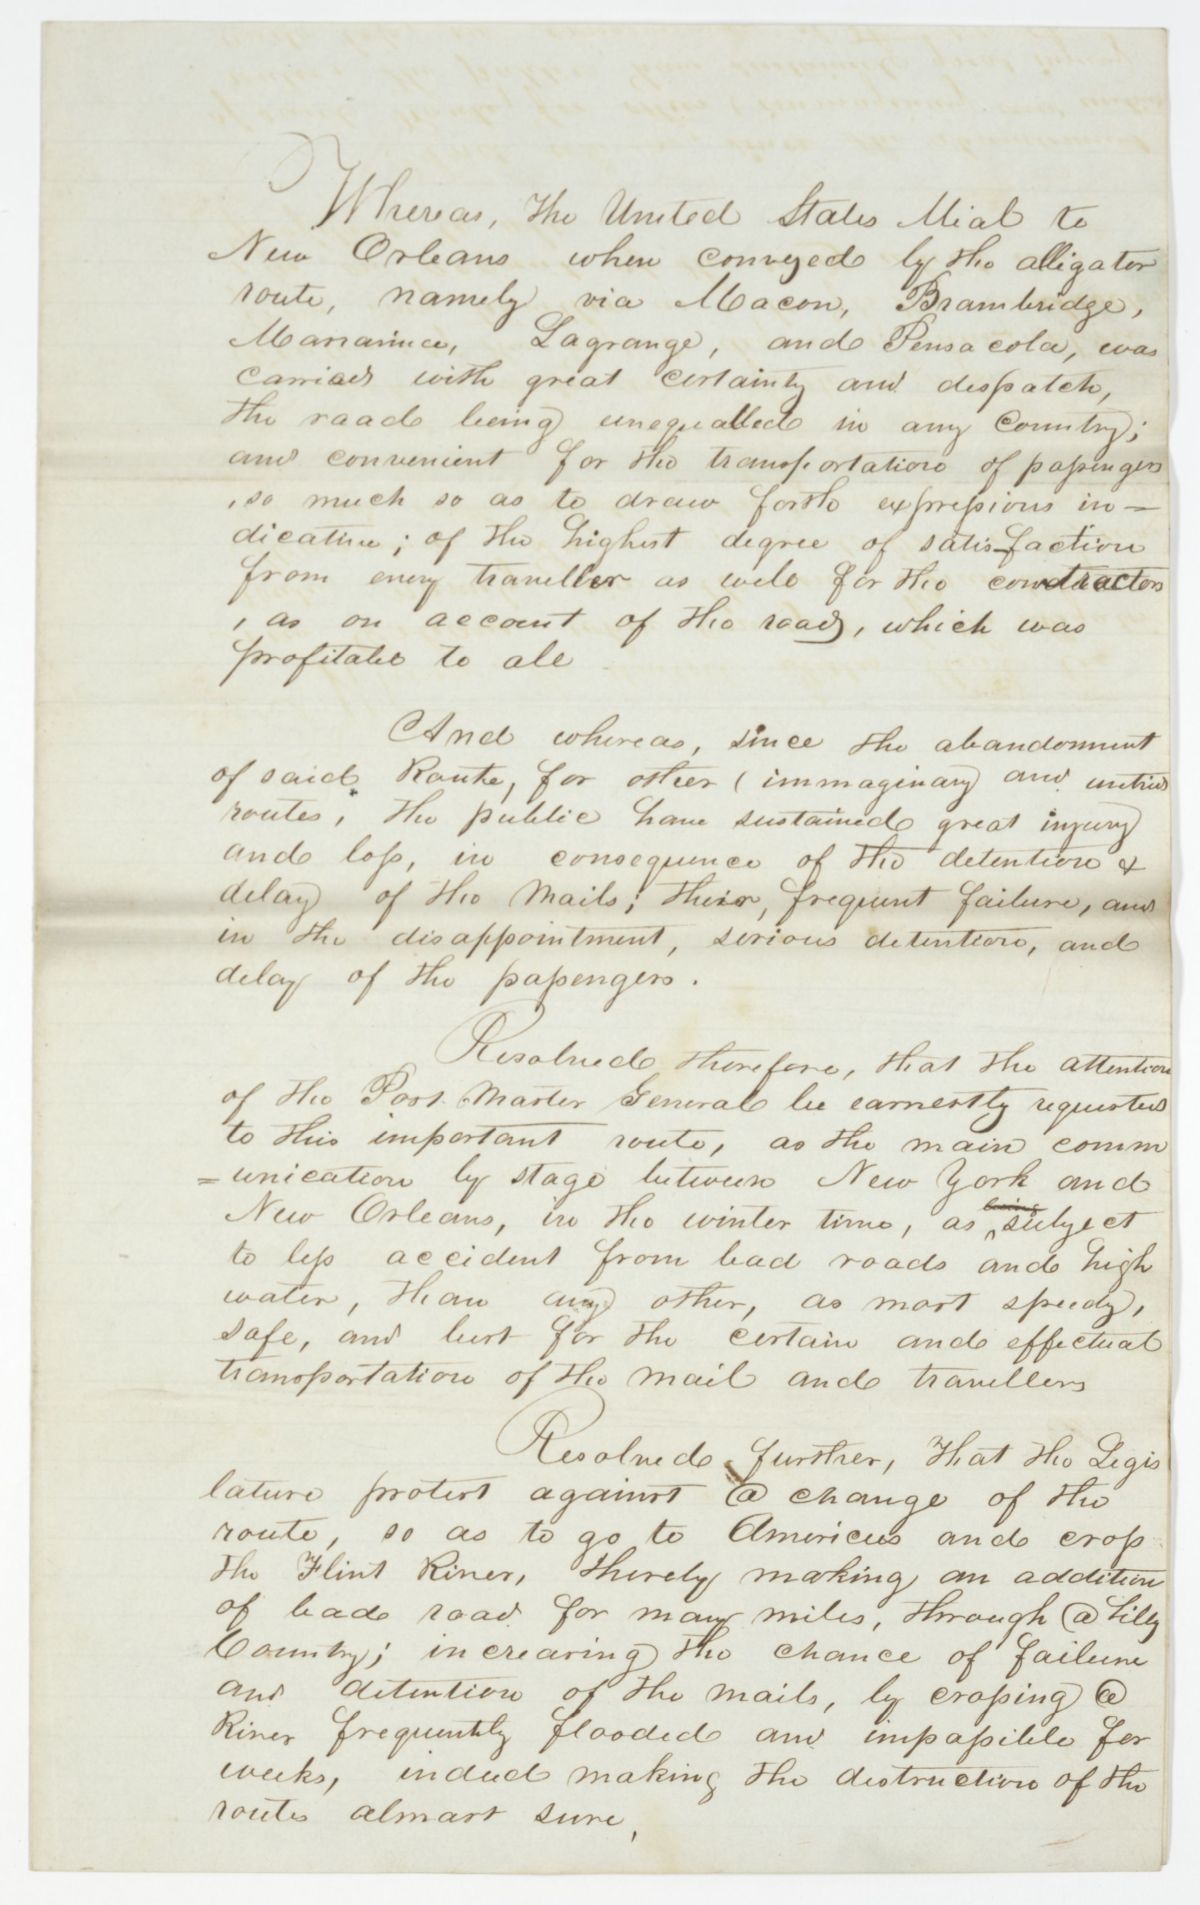 Whereas, the United States Mial to
New Orleans when conveyed by the alligator
route, namely via Macon, Brambridge,
Marianna, Lagrange, and Pensacola, was
carried with great certainty and despatch,
the raad being unequalled in any Country;
and convenient for the transportation of passengers
, so much so as to draw forth expressions in=
dicative; of the highest degree of satisfaction
from every traveller as well for the contractors
, as on account of the road, which was
profitable to all
And whereas, since the abandonment
of said Route, for other (immaginary and untried
routes, the public have sustained great injury
and loss, in consequence of the detention &
delay of the Mails; their, frequent failure, and
in the disappointment, serious detention, and
delay of the passengers.
Resolved therefore, that the attention
of the Post Master General be earnestly requested
to this important route, as the main comm
=unication by stage between New York and
New Orleans, in the winter time, as being subject
to less accident from bad roads and high
water, than any other, as most speedy,
safe, and best for the certain and effectual
transportation of the mail and travellers
Resolved further, that the Legis
lature protest against @ change of the
route, so as to go to Americus and cross
the Flint River, thereby making an addition
of bad road for many miles, through @ hilly
Country; increasing the chance of failure
and detention of the mails, by crossing @
River frequently flooded and impassible for
weeks, indeed making the destruction of the
routes almost sure,